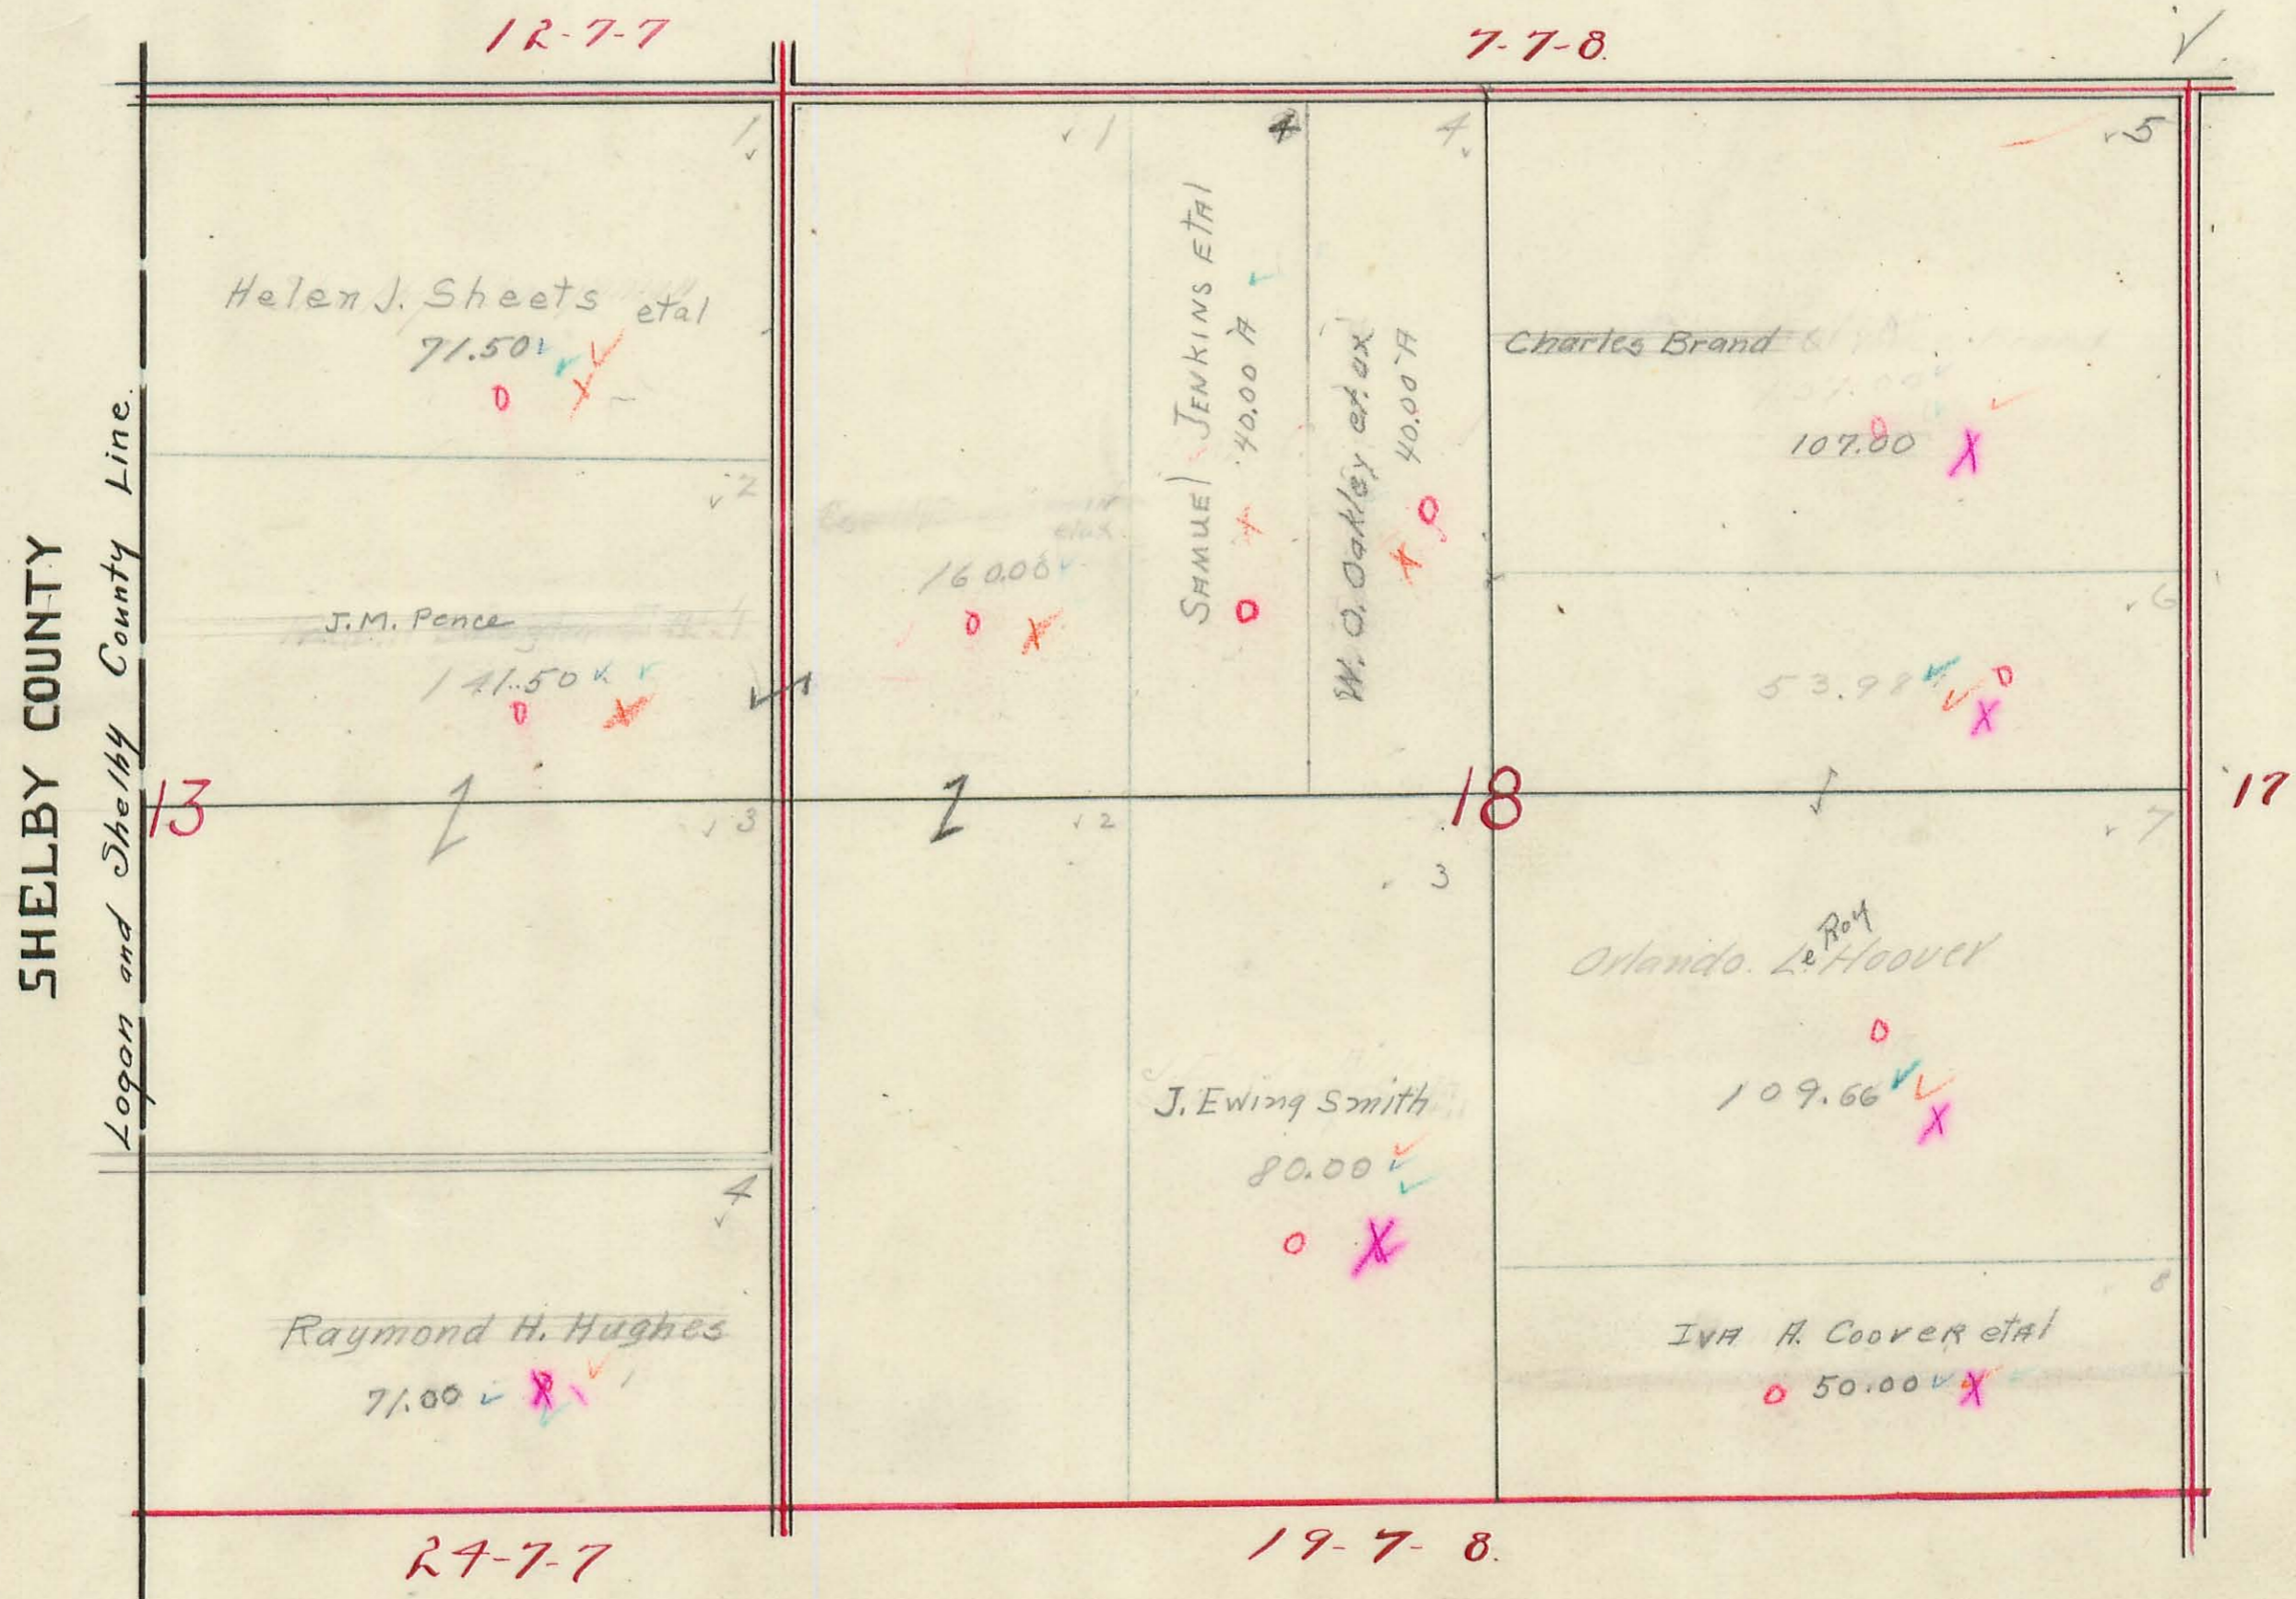 12-7-7
7-7-8.
SHELBY COUNTY
Logan and Shelby County Line.
1
Helen J. Sheets etal
71.50
2
J.M. Pence
141.50
13
3
4
Raymond H. Hughes
71.00
24-7-7
1
etux
160.00
4
SAMUEL JENKINS ETAL
40.00 A
4
W. O. Oakley et. ux
40.00 A
2
18
3
J. Ewing Smith
80.00
19-7-8.
5
Charles Brand
107.00
6
53.98
17
7
Orlando. Le Roy Hoover
109.66
8
IVA A. COOVER etAl
50.00